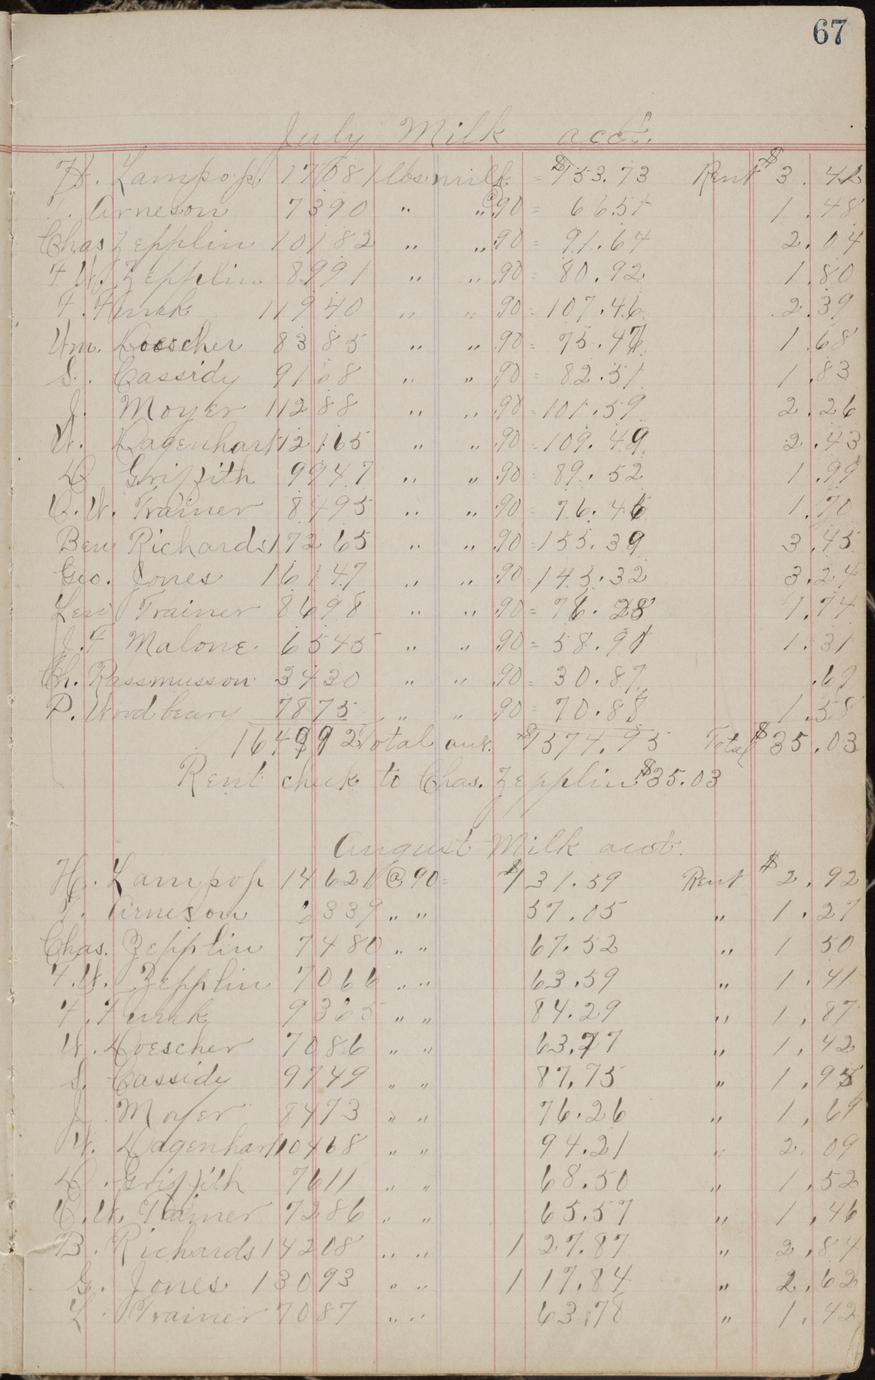 67
July Milk acct.
H. Lampop. 17081 lbs milk = $153.73 Rent $3.42
Arneson 7390 " " @90 = 66.51 1.48
Chas Zepplin 10182 " " .90 = 91.64 2.04
F.W. Zepplin 8991 " " .90 = 80.92 1.80
F. Funk 11940 " " 90 = 107.46 2.39
Wm. Loescher 8385 " " .90 = 75.47 1.68
S. Cassidy 9168 " " .90 = 82.51 1.83
J. Moyer 11288 " " .90 = 101.59 2.26
W. Dagenhart 12165 " " .90 = 109.49 2.43
D Griffith 9947 " " .90 = 89.52 1.99
C.W. Trainer 8495 " " .90 = 76.46 1.70
Ben Richards 17265 " " .90 = 155.39 3.45
Geo. Jones 16147 " " .90 145.32 3.24
Len Trainer 8698 " " 90 = 78.28 1.74
J.F Malone 6545 " " 90 = 58.91 1.31
Ch. Rassmusson 3430 " " 90 = 30.87 .69
P. Woodbeary 7875 " " 90 = 70.88 1.58
164992 Total amt. $1574.95 Total $35.03
Rent check to Chas. Zepplin $35.03
August Milk acct.
H. Lampop 14621 @ 90 = $131.59 Rent $2.92
T. Arneson 6339 " " 57.05 " 1.27
Chas. Zepplin 7480 " " 67.52 " 1 50
F.W. Zepplin 7066 " " 63.59 " 1.41
F. Funk 9365 " " 84.29 " 1.87
W. Loescher 7086 " " 63.77 " 1.42
S. Cassidy 9749 " " 87.75 " 1.95
J. Moyer 8473 " " 76.26 " 1.69
W. Dagenhart 10468 " " 94.21 " 2.09
D. Griffith 7611 " " 68.50 " 1.52
C.W. Trainer 7286 " " 65.57 " 1.46
B. Richards 14208 " " 127.87 " 2.84
G. Jones 13093 " " 117.84 " 2.62
L. Trainer 7087 " " 63.78 " 1.42